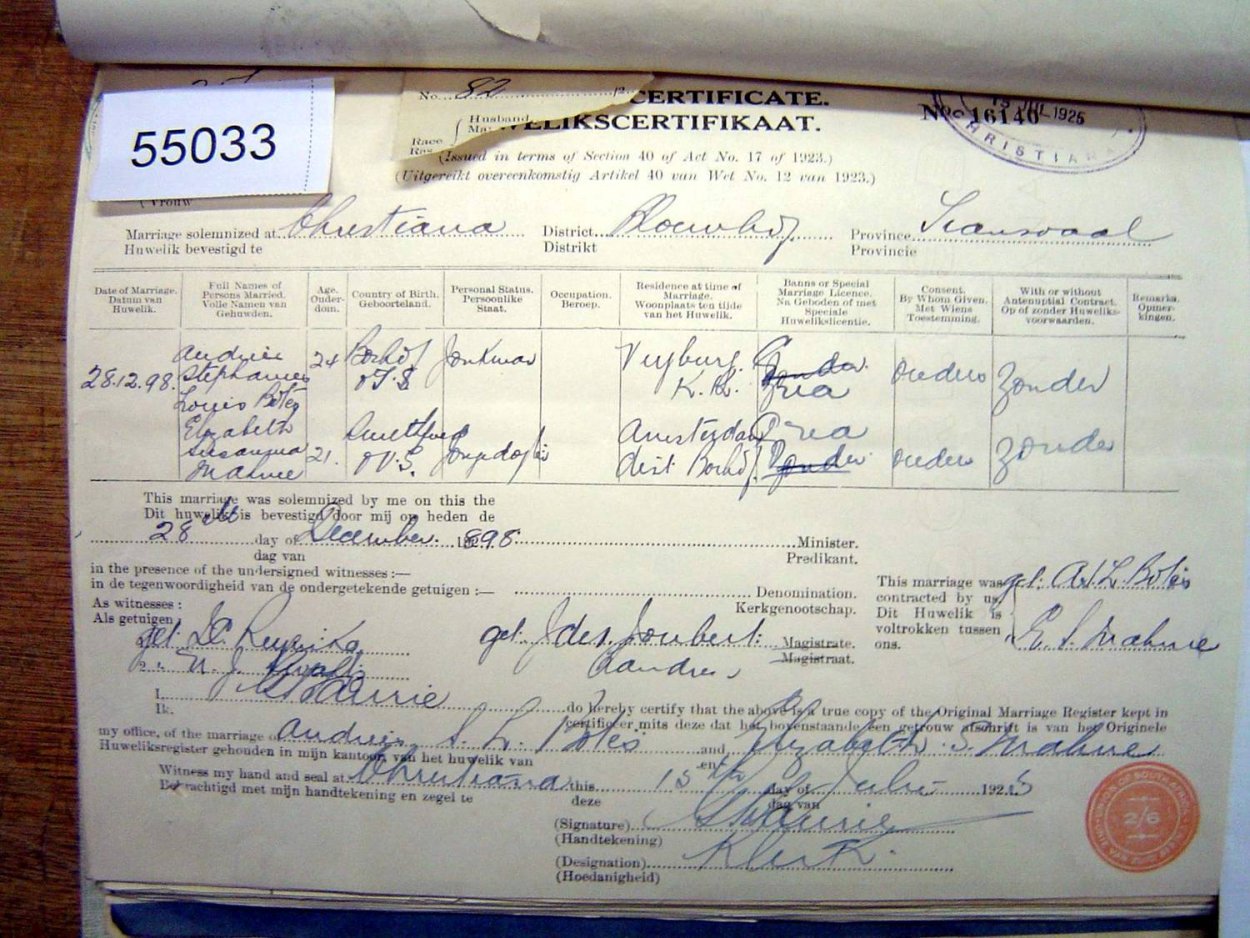 55033
No. 82
CERTIFICATE.
WELIKSCERTIFIKAAT.
Husband
Race
(Issued in terms of Section 40 of Act No. 17 of 1923.)
(Uitgereikt overeenkomstig Artikel 40 van Wet No. 12 van 1923.)
No. 16140
1925
CHRISTIANA
(Vrouw
Marriage solemnized at Christiana District Bloemhof Province Transvaal
Huwelik bevestigd te Distrikt Provincie
Date of Marriage. Datum van Huwelik.
Full Names of Persons Married. Volle Namen van Gehuwden.
Age. Ouderdom.
Country of Birth. Geboorteland.
Personal Status. Persoonlike Staat.
Occupation. Beroep.
Residence at time of Marriage. Woonplaats ten tijde van het Huwelik.
Banns or Special Marriage Licence. Na Geboden of met Speciale Huwelikslicentie.
Consent. By Whom Given. Met Wiens Toestemming.
With or without Antenuptial Contract. Op of zonder Huweliksvoorwaarden.
Remarks. Opmerkingen.
28.12.98. Andries Stephanus Louis Botes 24 Boshof OVS Jonkman Vryburg K.K. ouders zonder
Elizabeth Susanna Mahne 21. Smithfield O.V.S. Amsterdam dist. Boshof ouders zonder
This marriage was solemnized by me on this the
Dit huwelik is bevestigd door mij op heden de
28th day of December 1898. Minister.
dag van Predikant.
in the presence of the undersigned witnesses :—
in de tegenwoordigheid van de ondergetekende getuigen :— Denomination.
Kerkgenootschap.
As witnesses :
Als getuigen
get. J des. Joubert. Magistrate.
Landdros Magistraat.
This marriage was contracted by us. get. A.S.L. Botes
Dit Huwelik is voltrokken tussen ons. E. S. Mahne
I. do hereby certify that the above is a true copy of the Original Marriage Register kept in
Ik. certificeer mits deze dat het bovenstaande een getrouw afschrift is van het Originele
my office, of the marriage of Andries S. L. Botes and Elizabeth S. Mahne
Huweliksregister gehouden in mijn kantoor van het huwelik van en
Witness my hand and seal at Christiana this 15th day of Julie 1925
Bekrachtigd met mijn handtekening en zegel te deze dag van
(Signature)
(Handtekening)
(Designation) Klerk.
(Hoedanigheid)
2/6